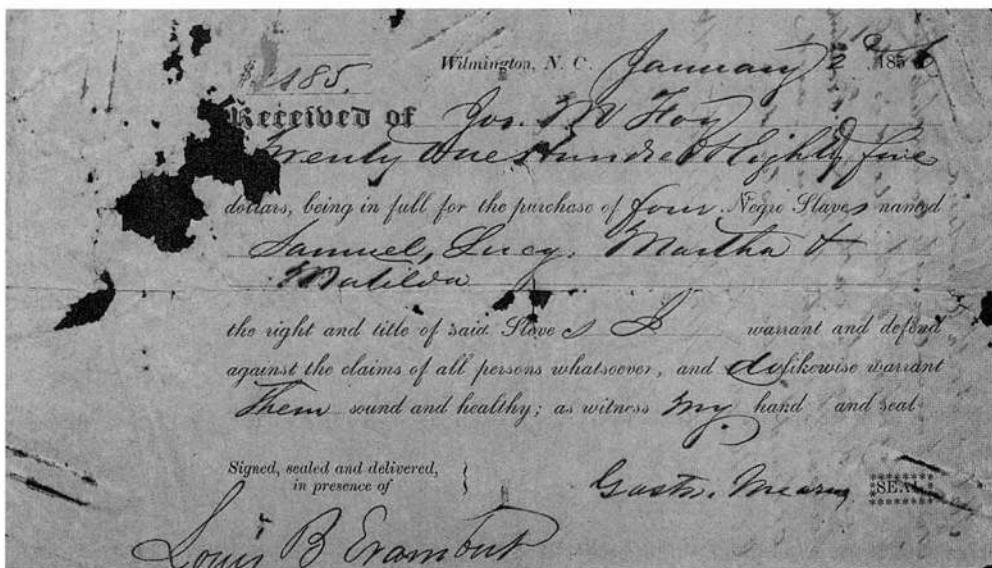 2185.
Wilmington, N. C. January 2 1856
Received of Jos. M Foy
Twenty One Hundred & Eighty five
dollars, being in full for the purchase of four Negro Slaves named
Samuel, Lucy. Martha &
Matilda
the right and title of said Slaves I warrant and defend
against the claims of all persons whatsoever, and do likewise warrant
Them sound and healthy; as witness my hand and seal
Signed, sealed and delivered,
in presence of
Gaston Meares SEAL
Louis B Erambert